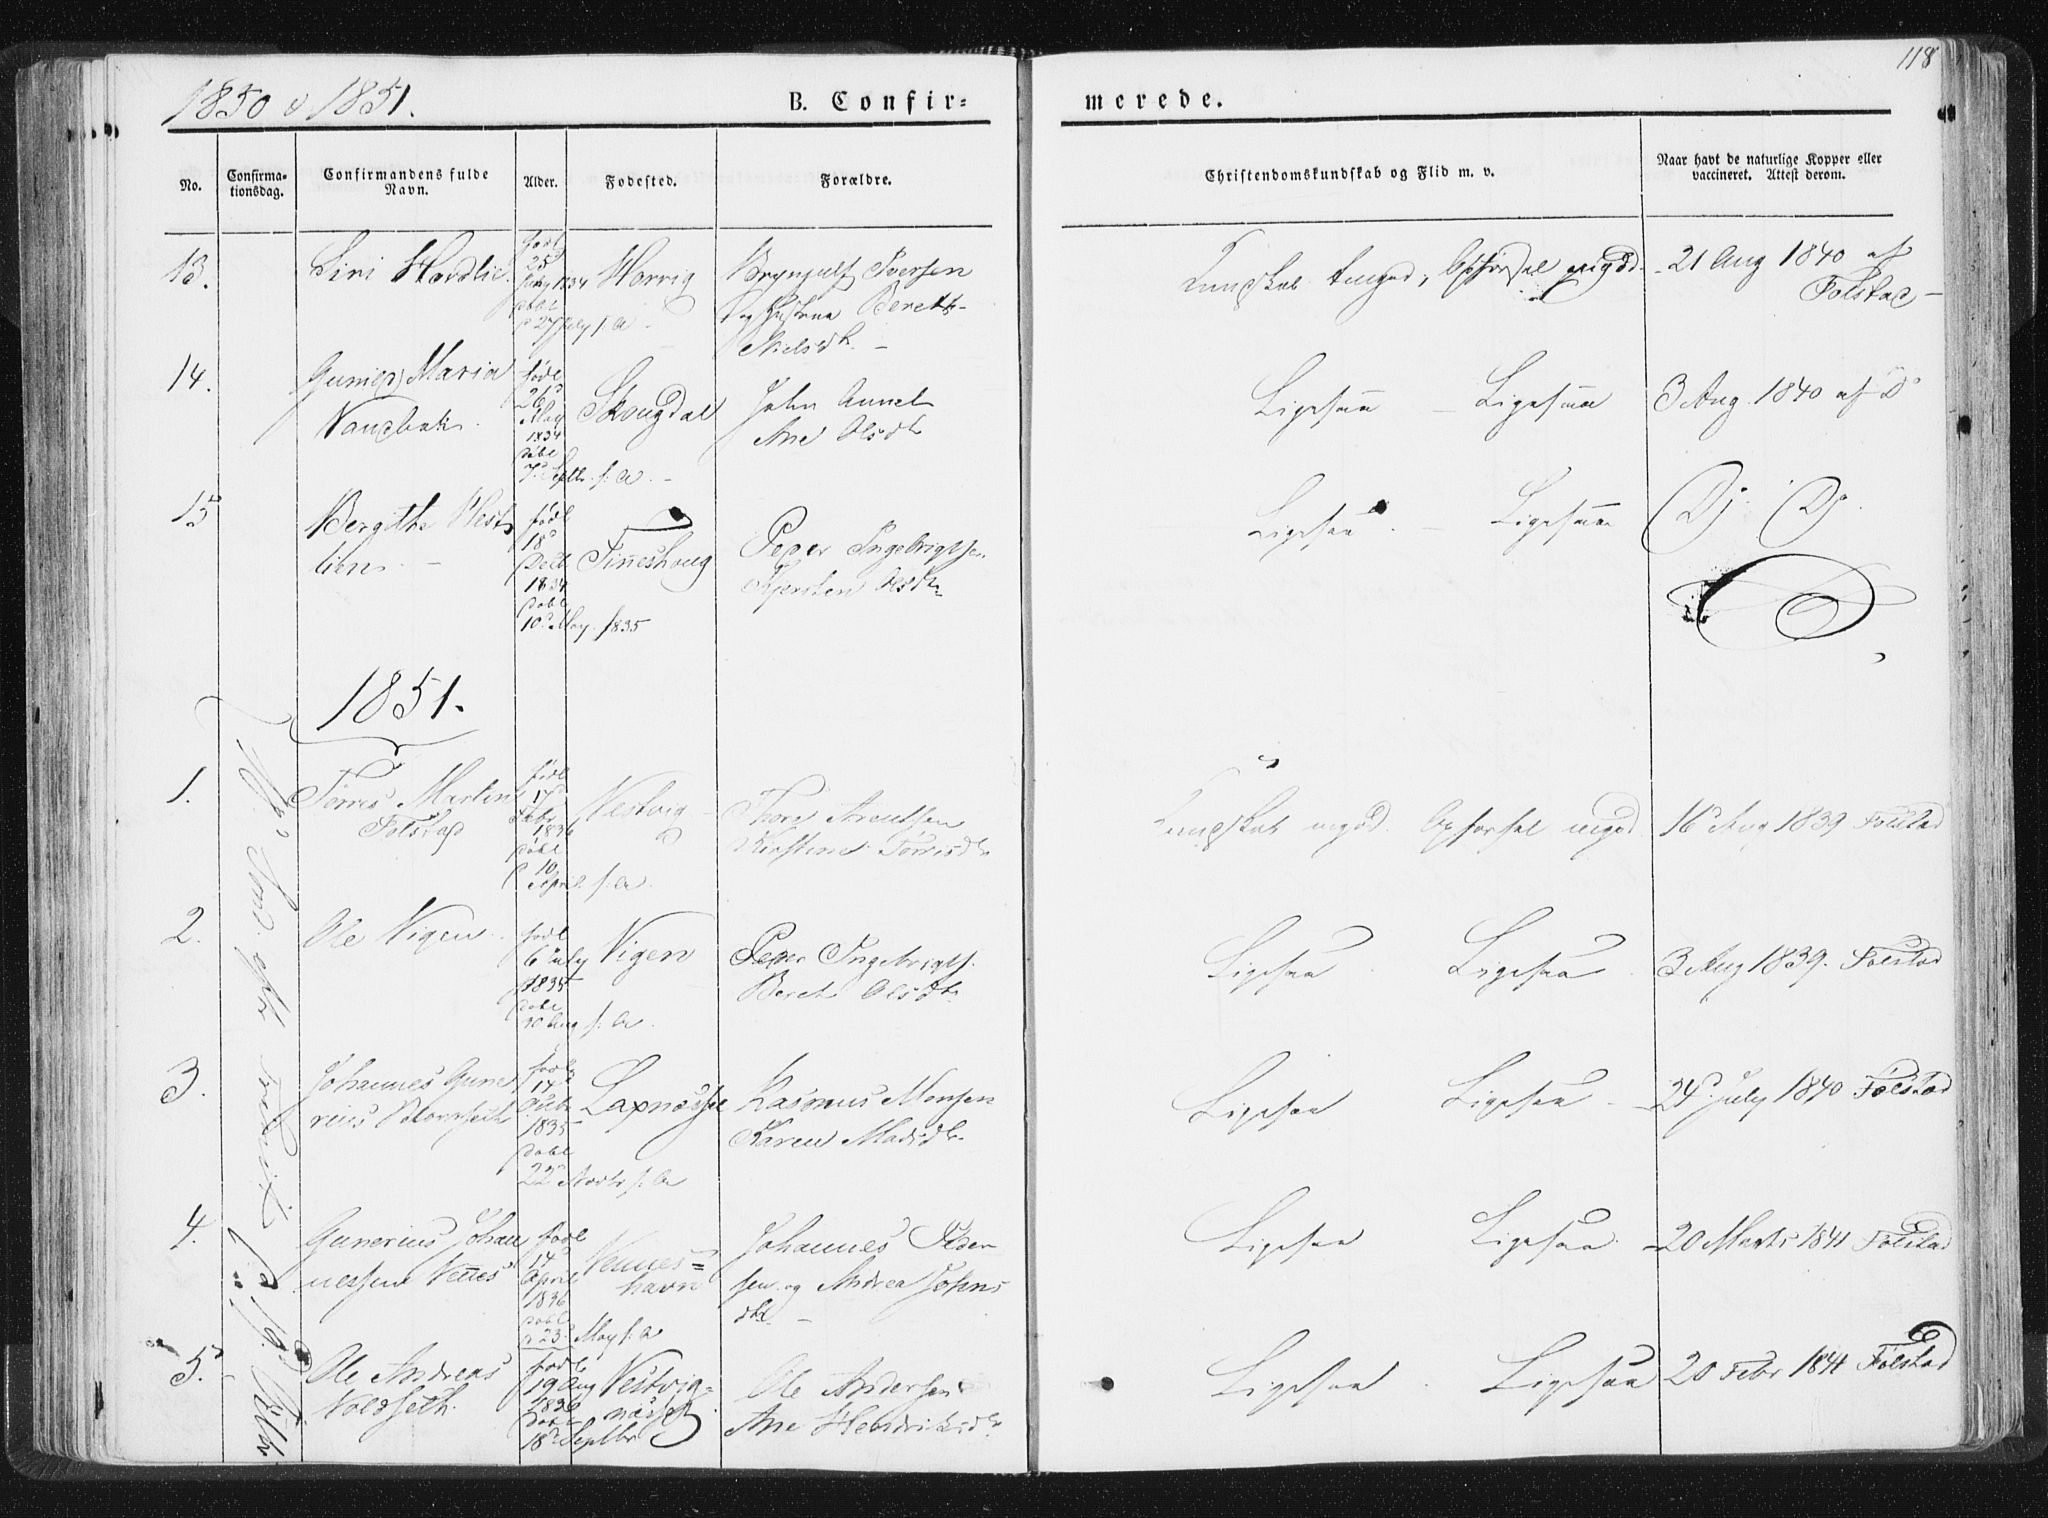 118
1850 & 1851.
B. Confir=
merede.
No.
Confirma-
tionsdag.
Confirmandens fulde
Navn.
Alder.
Fødested.
Forældre.
Christendomskundskab og Flid m. v.
Naar havt de naturlige Kopper eller
vaccineret. Attest derom.
13.
Siri
født
25
1834
døbt
27 July s. A
Horvig
Brynjulf Iversen
og Hustrue Bereth
Nielsdtr.
Kundskab temgod, Opførsel megod.
21 Aug 1840 af
Folstad
14.
Maria
født
26
May
1834
døbt
7. Septbr. s. A.
Skougdal
John
Ane Olsdtr
Ligesaa
Ligesaa
3 Aug 1840 af Do
15
Bergithe Vest
lien
født
18
Decb
1834
døbt
10. May 1835
Tineshoug
Peder Ingebrigtsen
Kjersten Olsdtr
Ligesaa
Ligesaa
Do Do
1851.
1.
Tørris Martin
Folstad
født
17
Febr
1836
døbt
10
April s. A.
Vestvig
Thore Arentsen
Kirstine Tørrisdtr
Kundskab mgod. Opførsel megod
16 Aug 1839 Folstad
2.
Ole Vigen
født
6 July
1835
døbt
30 Aug s. A.
Vigen
Peder Ingebrigts.
Bereth Olsdtr
Ligesaa
Ligesaa
3 Aug 1839. Folstad
3.
Johannes Gune
rius
født
14
Octbr
1835
døbt
22
s. A
Laxnæsset
Rasmus Monsen
Karen Madsdtr
Ligesaa
Ligesaa
24 July 1840 Folstad
4.
Gunerius Johan
nessen Vennes
født
14
April
1836
døbt
23. May s. A
Vennes=
havn
Johannes Peder
sen og Andrea Johns
dtr
Ligesaa
Ligesaa
20 Marts 1841 Folstad
5.
Ole Andreas
Voldseth.
født
19 Aug
1836
døbt
18 Septbr
Vestvig=
næsset
Ole Andersen
Ane Hendriksdtr
Ligesaa
Ligesaa
20 Febr 1841 Folstad